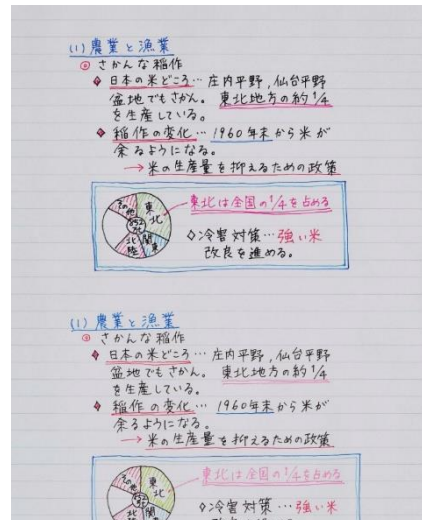 (1) 農業と漁業
◎ さかんな稲作
◆ 日本の米どころ… 庄内平野,仙台平野
盆地でもさかん。 東北地方の約1/4
を生産している。
◆ 稲作の変化… 1960年末から米が
余るようになる。
→米の生産量を抑えるための政策
東北は全国の1/4を占める
その他
東北
関東
北陸
◇冷害対策…強い米
改良を進める。
(1) 農業と漁業
◎ さかんな稲作
◆ 日本の米どころ… 庄内平野,仙台平野
盆地でもさかん。 東北地方の約1/4
を生産している。
◆ 稲作の変化… 1960年末から米が
余るようになる。
→ 米の生産量を抑えるための政策
東北は全国の1/4を占める
その他
東北
◇冷害対策…強い米